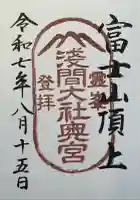 富士山頂上
靈峯
淺間大社奥宮
登拜
令和七年八月十五日